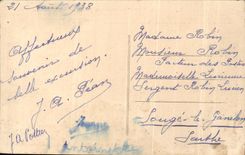 21 Août 1938
Affectueux
souvenir de
belle excursion.
J. A. Jean
J A Pottier
Madame Robin
Monsieur Robin
Facteur des Postes
Mademoiselle
Sergent Robin
Sougé-le-Ganelon
Sarthe